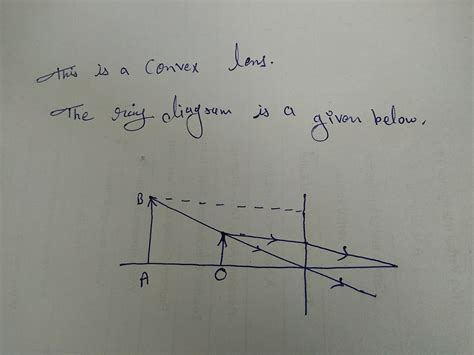 This is a convex lens.
The ray diagram is a given below.
B
A
O